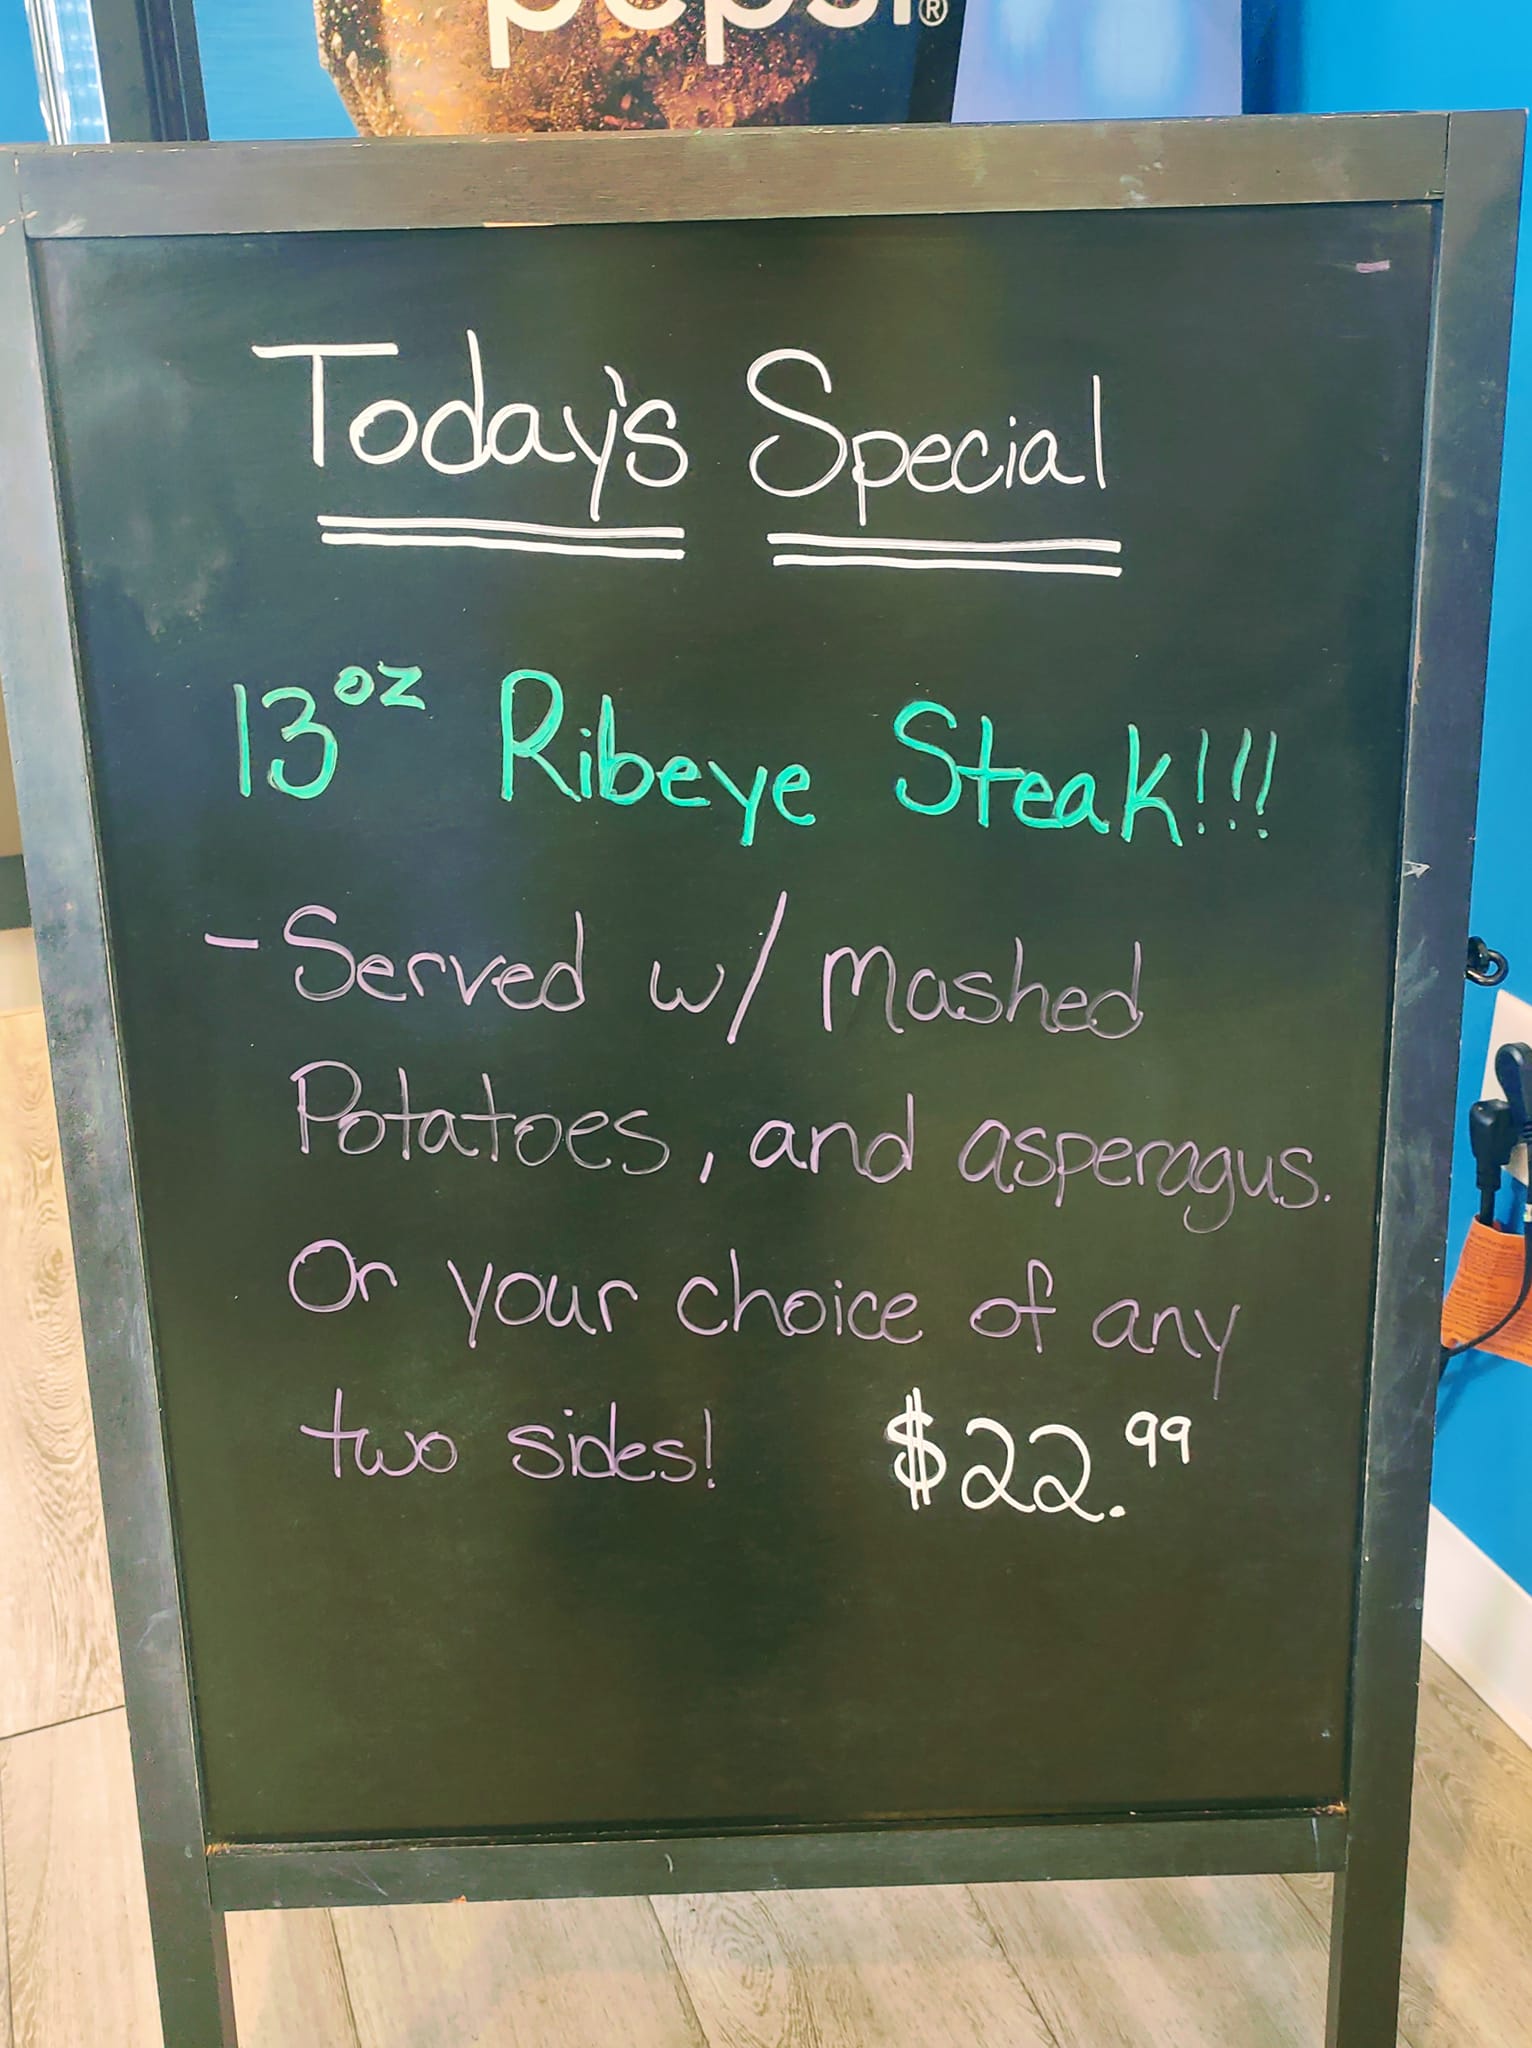 pepsi®
Today's Special
13 oz Ribeye Steak!!!
- Served w/ Mashed
Potatoes, and asperagus.
Or your choice of any
two sides! $22.99